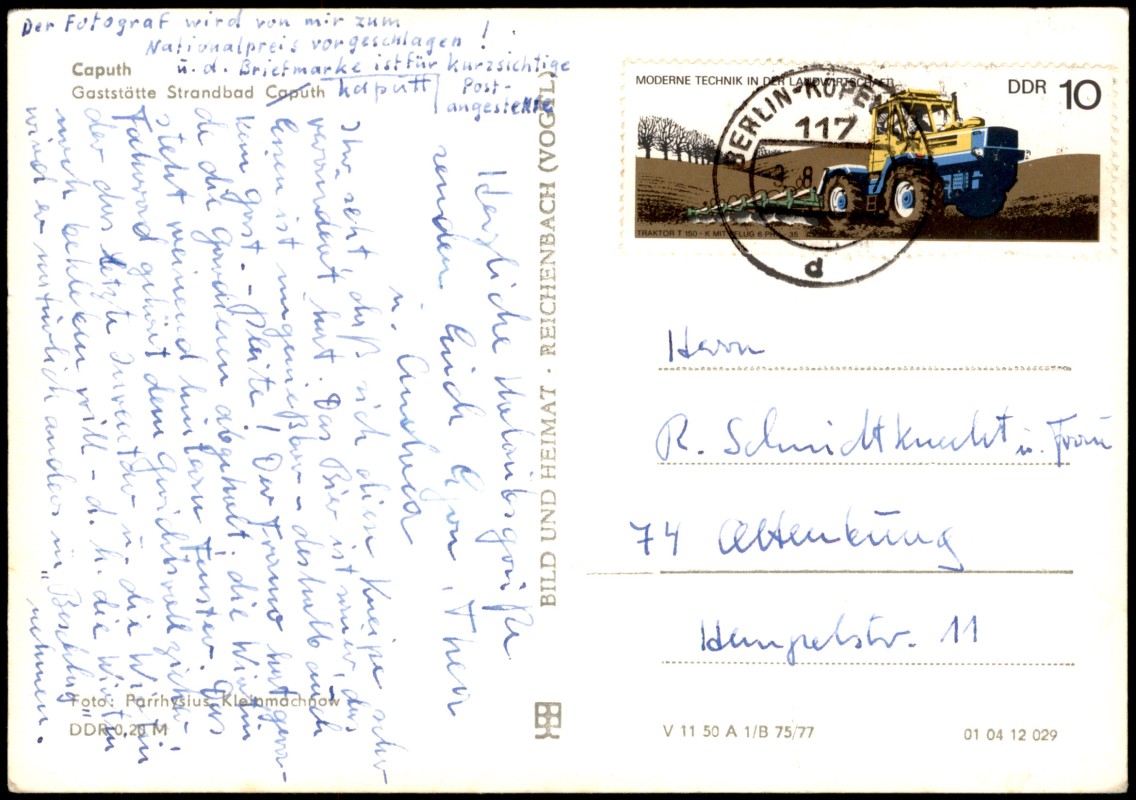 Der Fotograf wird von mir zum
Nationalpreis vorgeschlagen !
u. d. Briefmarke ist für kurzsichtige
Post-
angestellte
Caputh
Gaststätte Strandbad Caputh
kaputt
Herzliche Urlaubsgrüße
senden Euch Egon, Thea
u. Andrea
Ihr seht, daß sich diese Kneipe sehr
verändert hat. Das Bier ist mies, das
Essen ist ungenießbar - deshalb auch
kein Gast. - Pleite! Der Franz hat
die die abgeholt, die Wirtin
steht weinend hinterm Fenster. Das
Fahrrad gehört dem Gerichtsvollzieh-
der das letzte Inventar u. die Wirtin
noch bekleben will - d. h. die Wirtin
wird er natürlich anders in "Beschlag"
nehmen.
Foto: Parrhysius, Kleinmachnow
DDR 0,20 M
BILD UND HEIMAT · REICHENBACH (VOGTL)
MODERNE TECHNIK IN DER LANDWIRTSCHAFT
DDR 10
TRAKTOR T 150 - K MIT PFLUG 6 PHX 35
BERLIN-KÖPENICK
117
8
d
Herrn
R. Schmidtknecht u. Frau
74 Altenburg
Hempelstr. 11
V 11 50 A 1/B 75/77
01 04 12 029